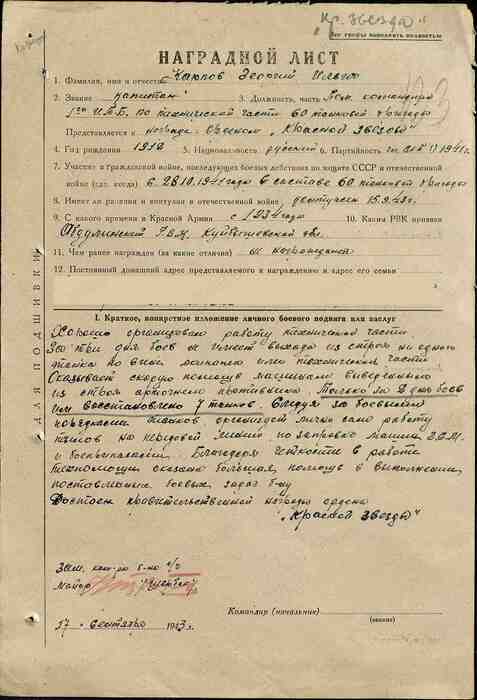 „Кр. Звезда"
Все графы заполнять полностью
НАГРАДНОЙ ЛИСТ
1. Фамилия, имя и отчество Карпов Георгий Ильич
2. Звание капитан 3. Должность, часть Пом. командира
1го И.Т.Б. по технической части 60 танковой бригады
Представляется к награде Орденом „Красной Звезды"
4. Год рождения 1912 5. Национальность русский 6. Партийность 1941 г.
7. Участие в гражданской войне, последующих боевых действиях по защите СССР и отечественной
войне (где, когда) с 28.10.1941 года в составе 60 танковой бригады
8. Имеет ли ранения и контузии в отечественной войне 15.9.43 г.
9. С какого времени в Красной Армии с 1934 года 10. Каким РВК призван
Абдулинский Р.В.К. Куйбышевской обл.
11. Чем ранее награжден (за какие отличия) не награждался
12. Постоянный домашний адрес представляемого к награждению и адрес его семьи
ДЛЯ ПОДШИВКИ
I. Краткое, конкретное изложение личного боевого подвига или заслуг
Хорошо организовал работу технической части.
За три дня боев не имеет выхода из строя ни одного
танка по вине экипажей или технической части
Оказывает скорую помощь машинам выведенным
из строя артогнем противника. Только за 2 дня боев
им восстановлено 7 танков. Следуя за боевыми
порядками танков организует лично сам работу
тылов на передовой линии по заправке машин Г.С.М.
и боеприпасами. Благодаря четкости в работе
техпомощи оказана большая помощь в выполнении
поставленных боевых задач б-ну
Достоин правительственной награды ордена
„Красной Звезды"
Зам. ком-ра б-на п/ч
майор
Командир (начальник)
(звание)
17 " Сентября 1943 г.